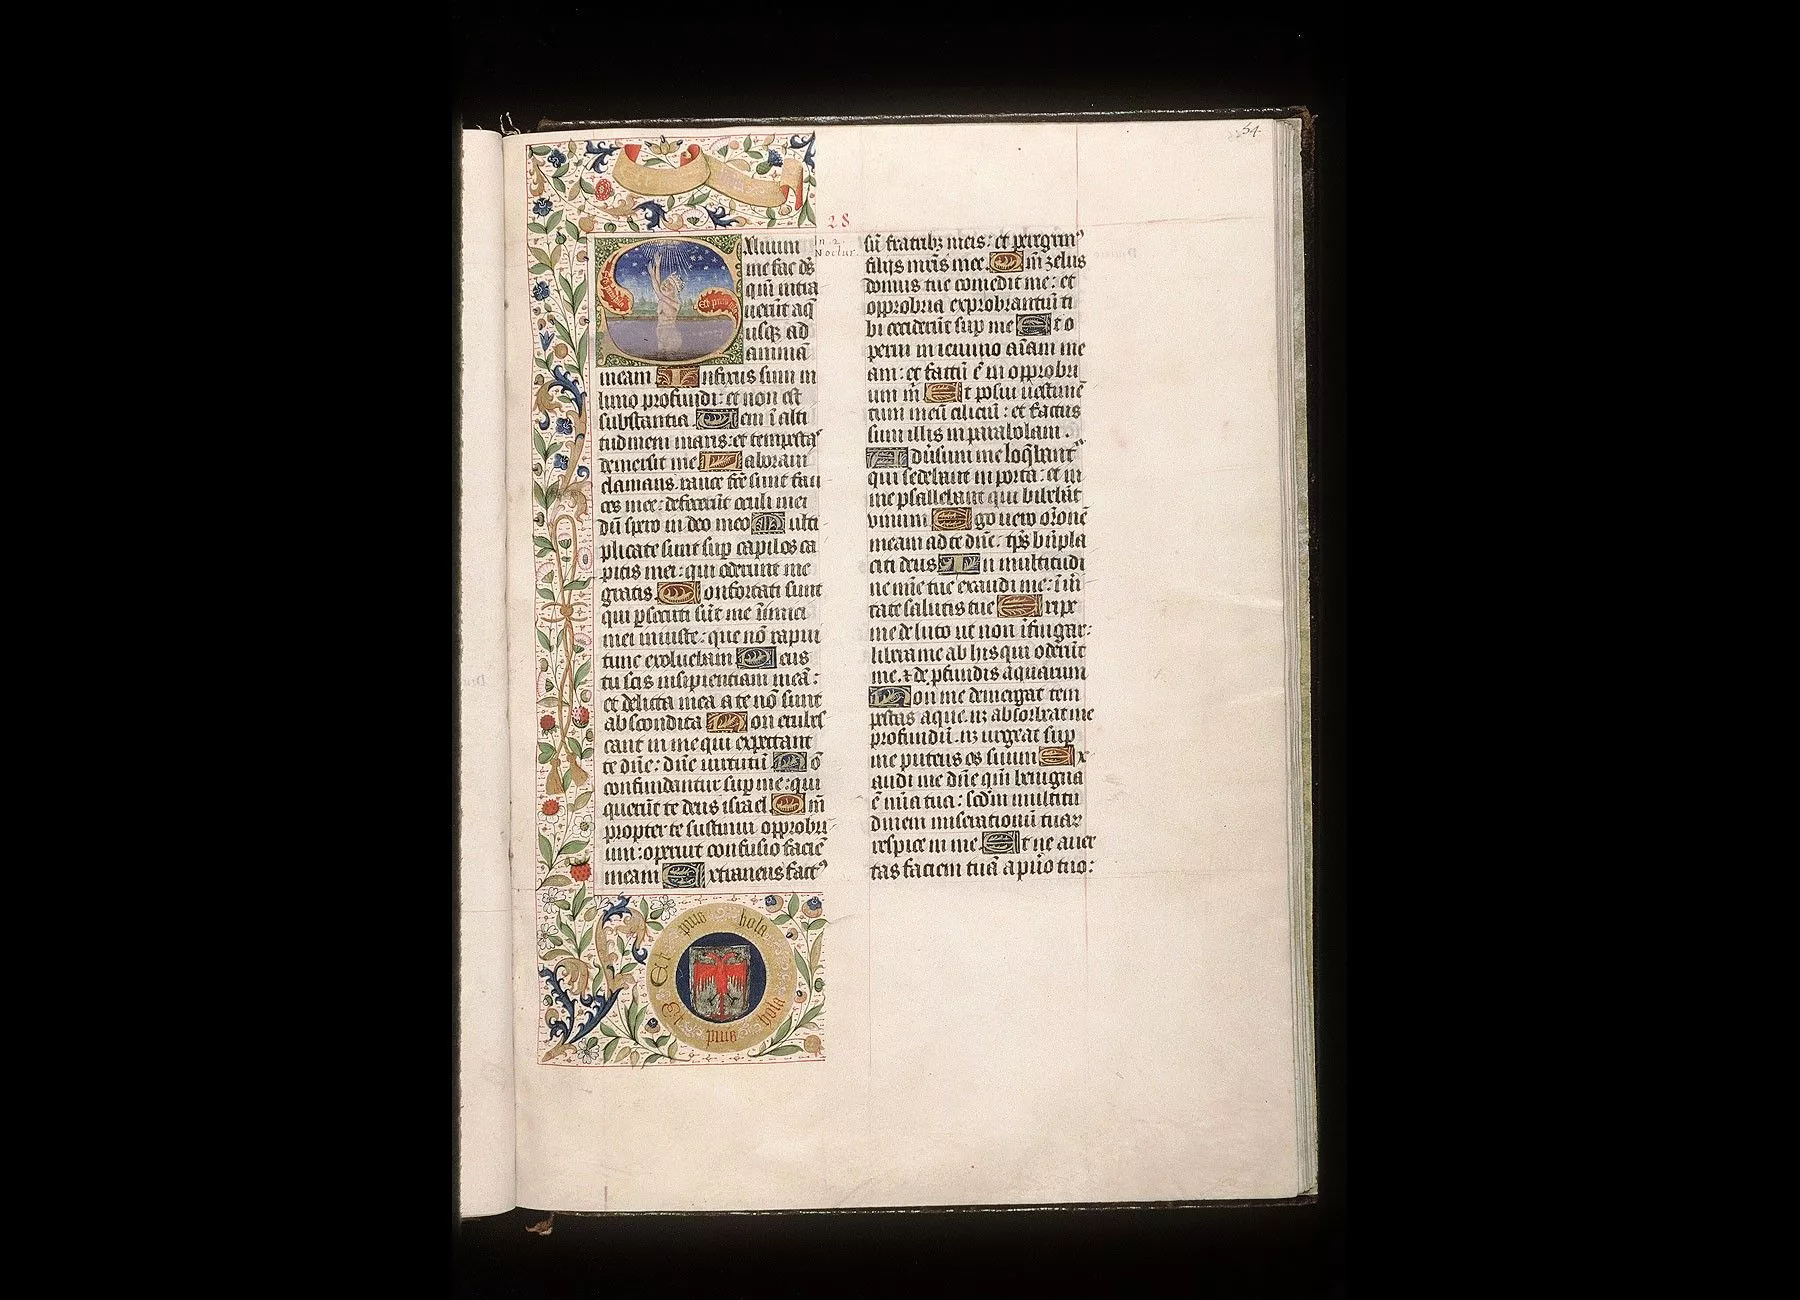 54
28
In 2.
Noctur.
Aluum
me fac ds̄
qm̄ intra
uerūt aq̄
usqȝ ad
animā
meam Infixus sum in
limo profundi: et non est
substantia Veni ī alti
tudinem maris: et tempestas
demersit me Laboraui
clamans. rauce fc̄e sunt fau
ces mee: defecerūt oculi mei
dū spero in deo meo Multi
plicate sunt sup capillos ca
pitis mei: qui oderunt me
gratis Confortati sunt
qui psecuti sūt me īimici
mei iniuste: que nō rapui
tunc exoluebam Deus
tu scis insipientiam meā:
et delicta mea a te nō sunt
abscondita Non erubes
cant in me qui expectant
te dn̄e: dn̄e uirtutū Nō
confundantur sup me: qui
querūt te deus israel Qm̄
propter te sustinui opprobri
um: operuit confusio faciē
meam Extraneus factꝰ
sū fratribȝ meis: et peregrinꝰ
filijs mr̄is mee Qm̄ zelus
domus tue comedit me: et
opprobria exprobrantiū ti
bi ceciderūt sup me Et o
perui in ieiunio aīam me
am: et factū ē in opprobri
um m̄ Et posui uestimē
tum meū ciliciū: et factus
sum illis in parabolam.
Aduersum me loq̄bantʳ
qui sedebant in porta: et in
me psallebant qui bibebāt
vinum Ego uero orōnē
meam ad te dn̄e: tp̄s bn̄pla
citi deus In multitudi
ne mīe tue exaudi me: ī uī
tate salutis tue Eripe
me de luto ut non īfingar:
libera me ab his qui oderūt
me. ⁊ de pfundis aquarum
Non me demergat tem
pestas aque. nȝ absorbeat me
profundū. nȝ urgeat sup
me puteus os suum Ex
audi me dn̄e qm̄ benigna
ē mīa tua: scdm̄ multitu
dinem miserationū tuaꝝ
respice in me Et ne auer
tas faciem tuā a puīo tuo:
Et plus hola
Et plus hola